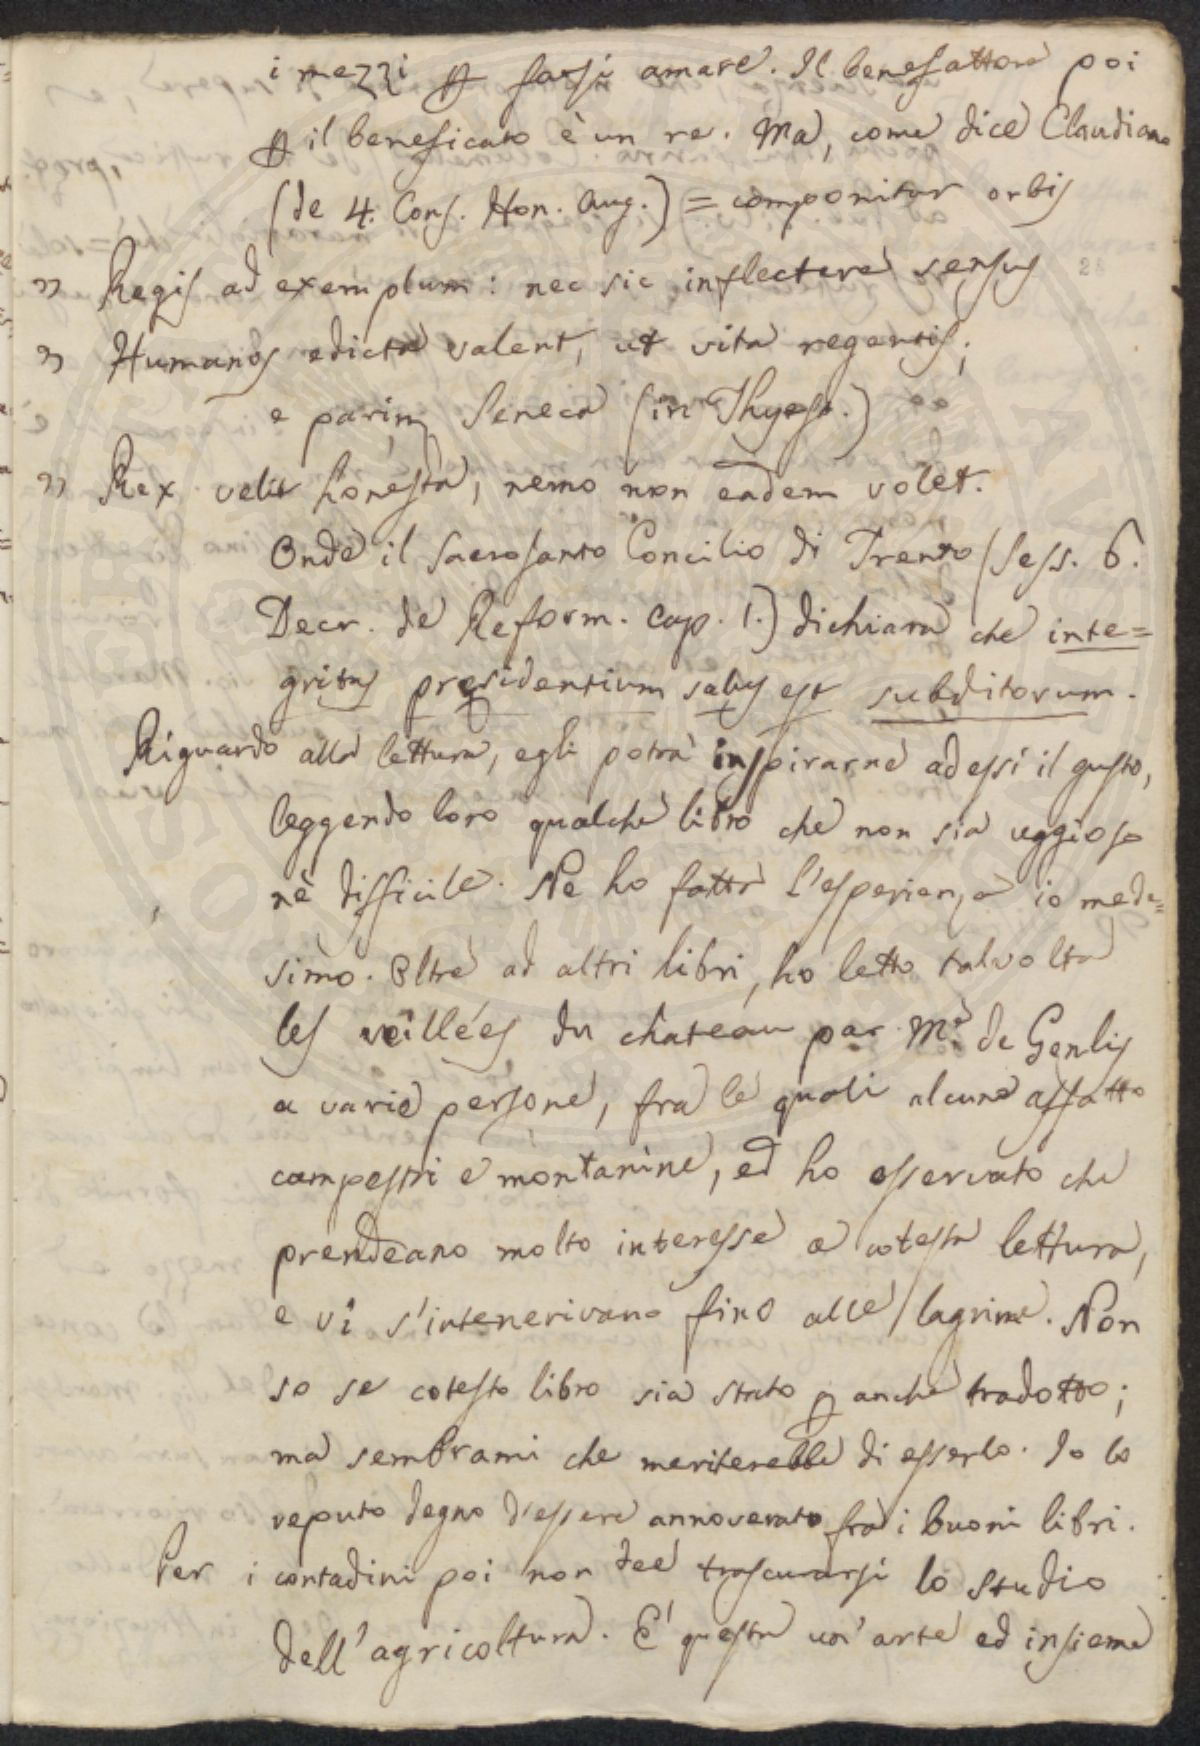 i mezzi ꝑ farsi amare. Il benefattore poi
ꝑ il beneficato è un re. Ma, come dice Claudiano
(de 4. Cons. Hon. Aug.) = componitur orbis
" Regis ad exemplum: nec sic inflectere sensus
" Humanos edicta valent, ut vita regentis;
e parim. Seneca (in Thyest.)
" Rex velit honesta, nemo non eadem volet.
Onde il sacrosanto Concilio di Trento (Sess. 6.
Decr. de Reform. Cap. 1.) dichiara che inte=
gritas presidentium salus est subditorum.
Riguardo alla lettura, egli potrà inspirarne ad essi il gusto,
leggendo loro qualche libro che non sia uggioso
nè difficile. Ne ho fatta l'esperienza io mede=
simo. Oltre ad altri libri, ho letto talvolta
les veillées du chateau par M.e de Genlis
a varie persone, fra le quali alcune affatto
campestri e montanine, ed ho osservato che
prendeano molto interesse a cotesta lettura,
e vi s'intenerivano fino alle lagrime. Non
so se cotesto libro sia stato ꝑ anche tradotto;
ma sembrami che meriterebbe di esserlo. Io lo
reputo degno d'essere annoverato fra i buoni libri.
Per i contadini poi non dee trascurarsi lo studio
dell'agricoltura. E' questa un'arte ed insieme